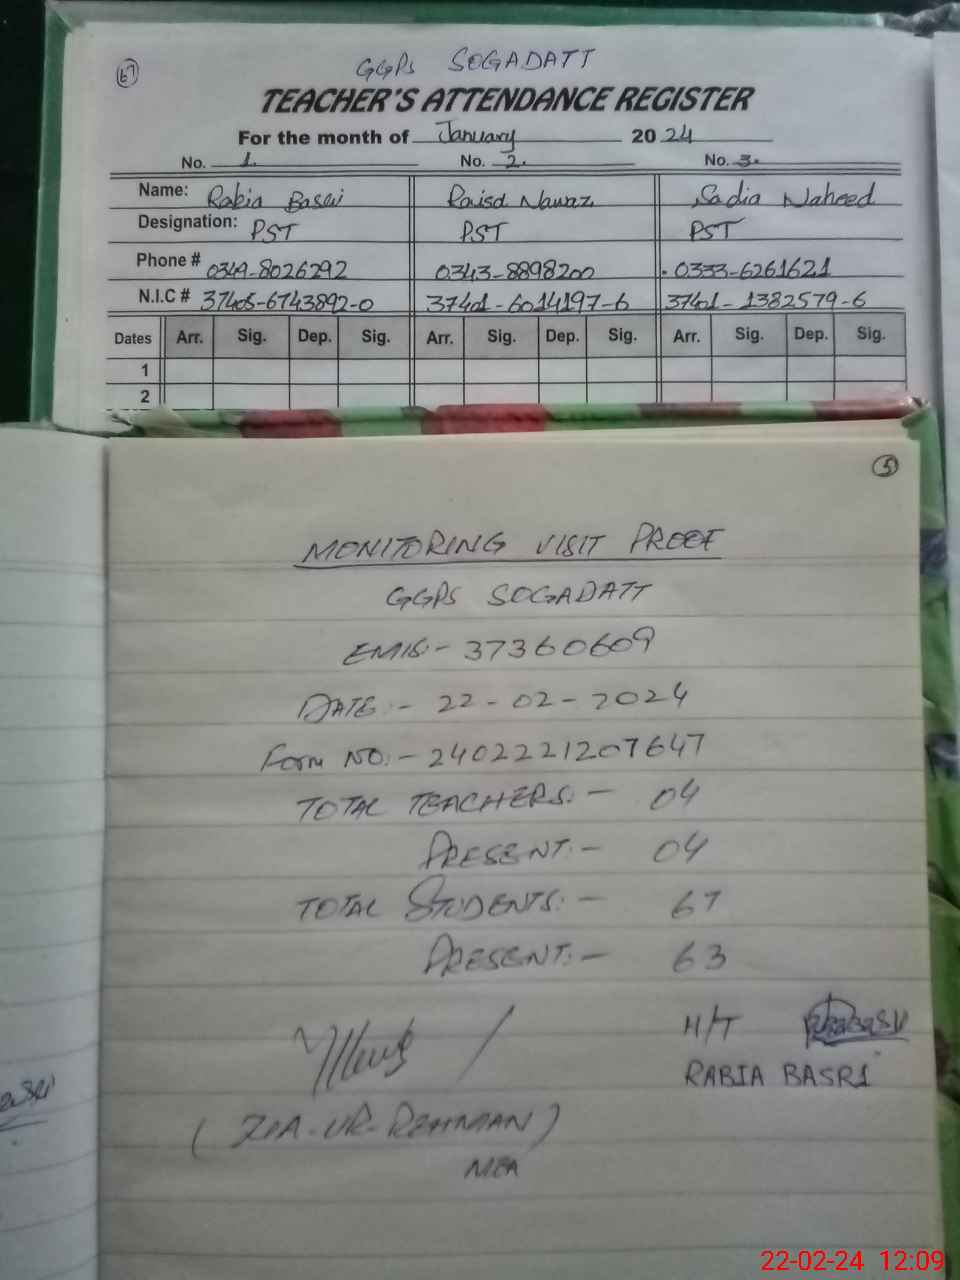 67
GGPS SOGADATT
TEACHER'S ATTENDANCE REGISTER
For the month of January 2024
No. 1. No. 2. No. 3.
Name: Rabia Basri Raisa Nawaz Sadia Naheed
Designation: PST PST PST
Phone # 0349-8026292 0343-8898200 0333-6261621
N.I.C # 37405-6743892-0 37401-6014197-6 37401-1382579-6
Dates Arr. Sig. Dep. Sig. Arr. Sig. Dep. Sig. Arr. Sig. Dep. Sig.
1
2
5
MONITORING VISIT PROOF
GGPS SOGADATT
EMIS:- 37360609
DATE:- 22-02-2024
Form NO:- 2402221207647
TOTAL TEACHERS:- 04
PRESENT:- 04
TOTAL STUDENTS:- 67
PRESENT:- 63
H/T
RABIA BASRI
(ZIA-UR-REHMAN)
MEA
22-02-24 12:09